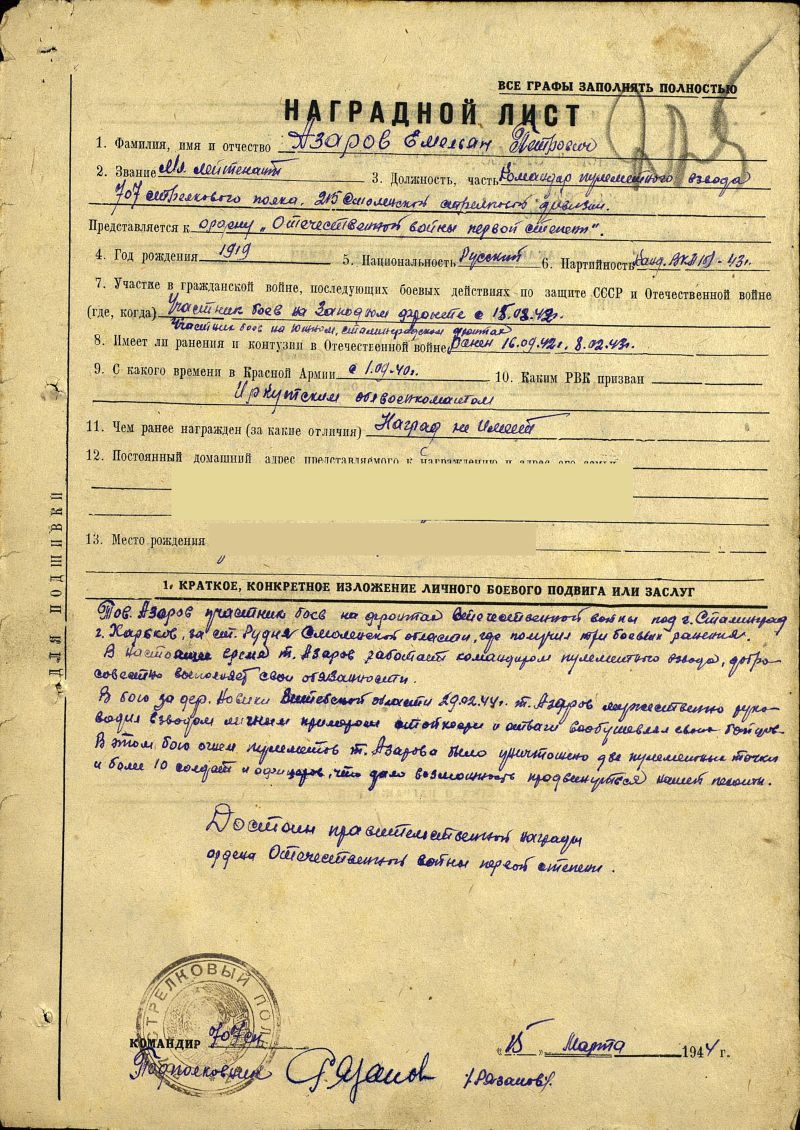 ВСЕ ГРАФЫ ЗАПОЛНЯТЬ ПОЛНОСТЬЮ
НАГРАДНОЙ ЛИСТ
1. Фамилия, имя и отчество Азаров Емельян Петрович
2. Звание Мл. лейтенант 3. Должность, часть Командир пулеметного взвода
707 стрелкового полка. 215 Смоленской стрелковой дивизии.
Представляется к ордену „Отечественной войны первой степени".
4. Год рождения 1919 5. Национальность Русский 6. Партийность Канд. ВКП(б) - 43г.
7. Участие в гражданской войне, последующих боевых действиях по защите СССР и Отечественной войне
(где, когда) Участник боев на Западном фронте с 15.03.42г.
Участник боев на Южном, Сталинградском фронтах
8. Имеет ли ранения и контузии в Отечественной войне Ранен 16.09.42г. 8.02.43г.
9. С какого времени в Красной Армии с 1.09.40г. 10. Каким РВК призван
Иркутским облвоенкоматом
11. Чем ранее награжден (за какие отличия) Наград не имеет
12. Постоянный домашний адрес представляемого к награждению и адрес его семьи
13. Место рождения
ДЛЯ ПОДШИВКИ
1. КРАТКОЕ, КОНКРЕТНОЕ ИЗЛОЖЕНИЕ ЛИЧНОГО БОЕВОГО ПОДВИГА ИЛИ ЗАСЛУГ
Тов. Азаров участник боев на фронтах Отечественной войны под г. Сталинград
г. Харьков, за ст. Рудня Смоленской области, где получил три боевых ранения.
В настоящее время т. Азаров работает командиром пулеметного взвода, добро-
совестно выполняет свои обязанности.
В бою за дер. Новики Витебской области 29.02.44г. т. Азаров мужественно руко-
водил взводом личным примером стойкости и отваги воодушевлял своих бойцов.
В этом бою огнем пулеметов т. Азарова было уничтожено две пулеметных точки
и более 10 солдат и офицеров, что дало возможность продвинуться нашей пехоте.
Достоин правительственной награды
ордена Отечественной войны первой степени.
СТРЕЛКОВЫЙ ПОЛК
КОМАНДИР 707 сп
Подполковник Рязанов /Рязанов/.
„15" Марта 1944 г.